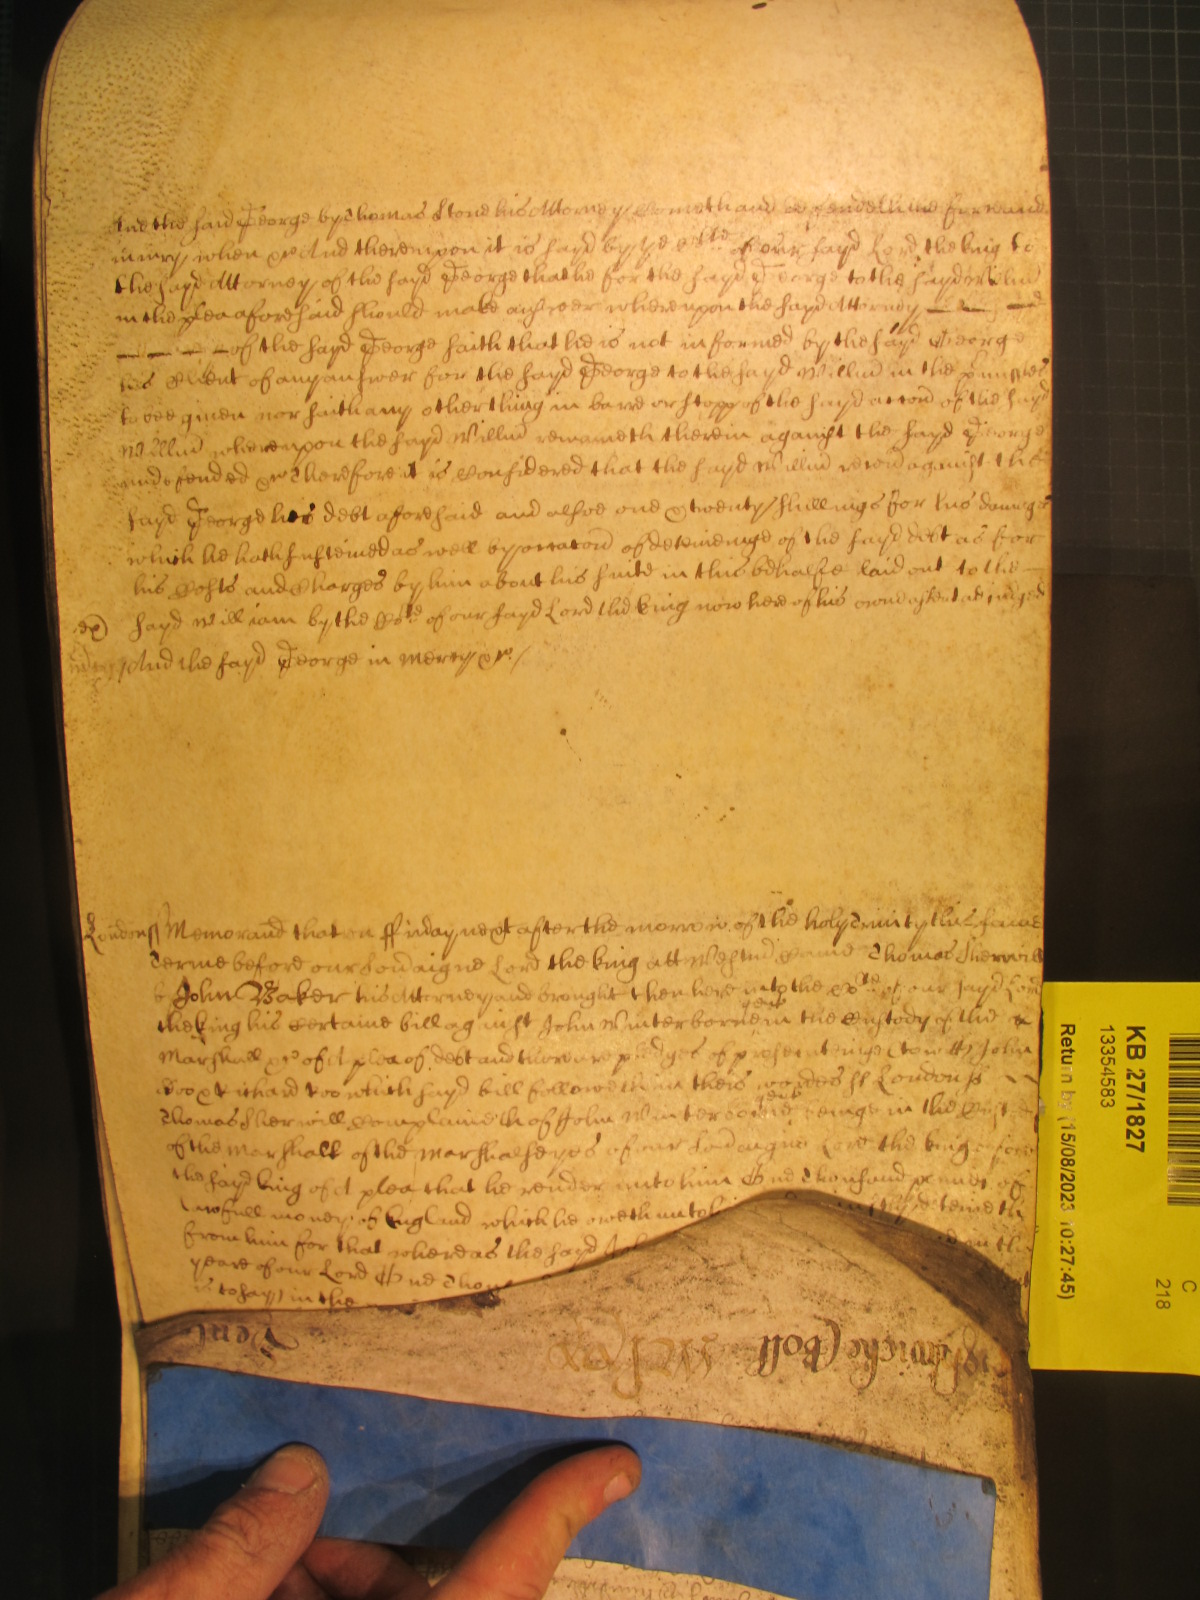 And the said George by Thomas Stone his Attorney Cometh and defendeth the force and
iniury when &c And thereupon it is sayd by the Co:te of our sayd Lord the king to
the sayd Attorney of the sayd George that he for the sayd George to the sayd Willm
in the plea aforesaid should make answer whereupon the sayd Attorney
of the sayd George saith that he is not informed by the sayd George
his Client of any answer for the sayd George to the sayd Willm in the
to bee given nor saith any other thing in barre or stopp of the sayd accon of the sayd
Willm whereupon the sayd Willm remaineth therein against the sayd George
undefended &c Therefore it is Considered that the sayd Willm recov against the
sayd George his debt aforesaid and alsoe one & twenty shillings for his damages
which he hath susteined as well by occacon of deteineinge of the sayd debt as for
his Costs and Charges by him about his suite in this behalfe laid out to the
sayd William by the Co:te of our sayd Lord the king now here of his owne assent adiudged
And the sayd George in mercy &c./
London ss Memorand that on ffriday next after the morrow of the holy Trinity this same
Terme before our Soveraigne Lord the king att Westm Came Thomas Sherwill
by John Baker his Attorney and brought then here into the Co:te of our sayd Lord
the king his Certaine bill against John Winterborne gent in the Custody of the
Marshall &c of A plea of debt and there are pledges of prosecuteinge (to witt) John
Doo & Richard Roo which sayd bill followeth in theis wordes ss London ss
Thomas Sherwill Complaineth of John Winterborne gent beinge in the Custody
of the Marshall of the Marshalseyes of our Soveraigne Lord the king before
the sayd king of A plea that he render unto him One Thousand pounds of
lawfull money of England which he oweth unto him deteineth
from him for that whereas the sayd John in the
yeare of our Lord One Thous
is to say) in the
KB 27/1827
13354583
Return by (15/08/2023 10:27:45)
C
218